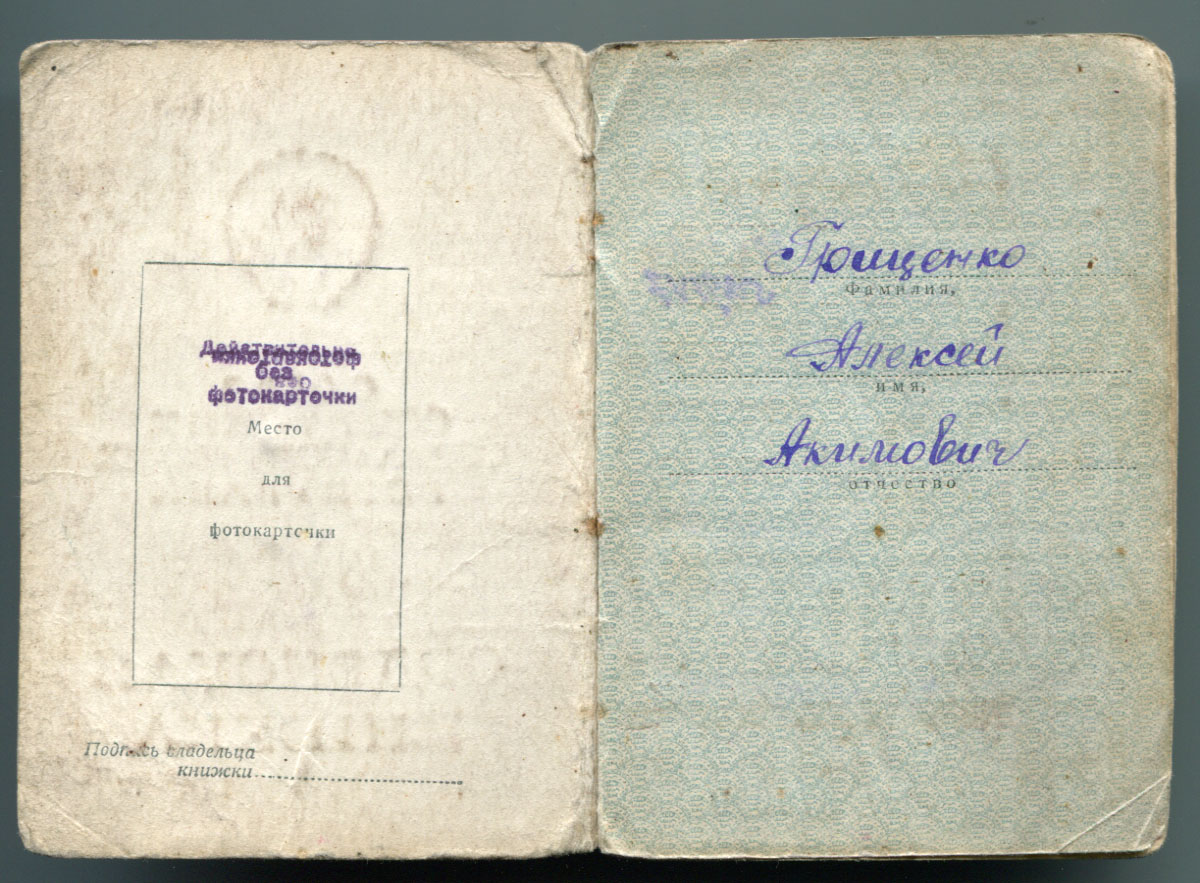 Действительно
без
фотокарточки
Место
для
фотокарточки
Подпись владельца
книжки
Грищенко
Фамилия,
Алексей
имя,
Акимович
отчество